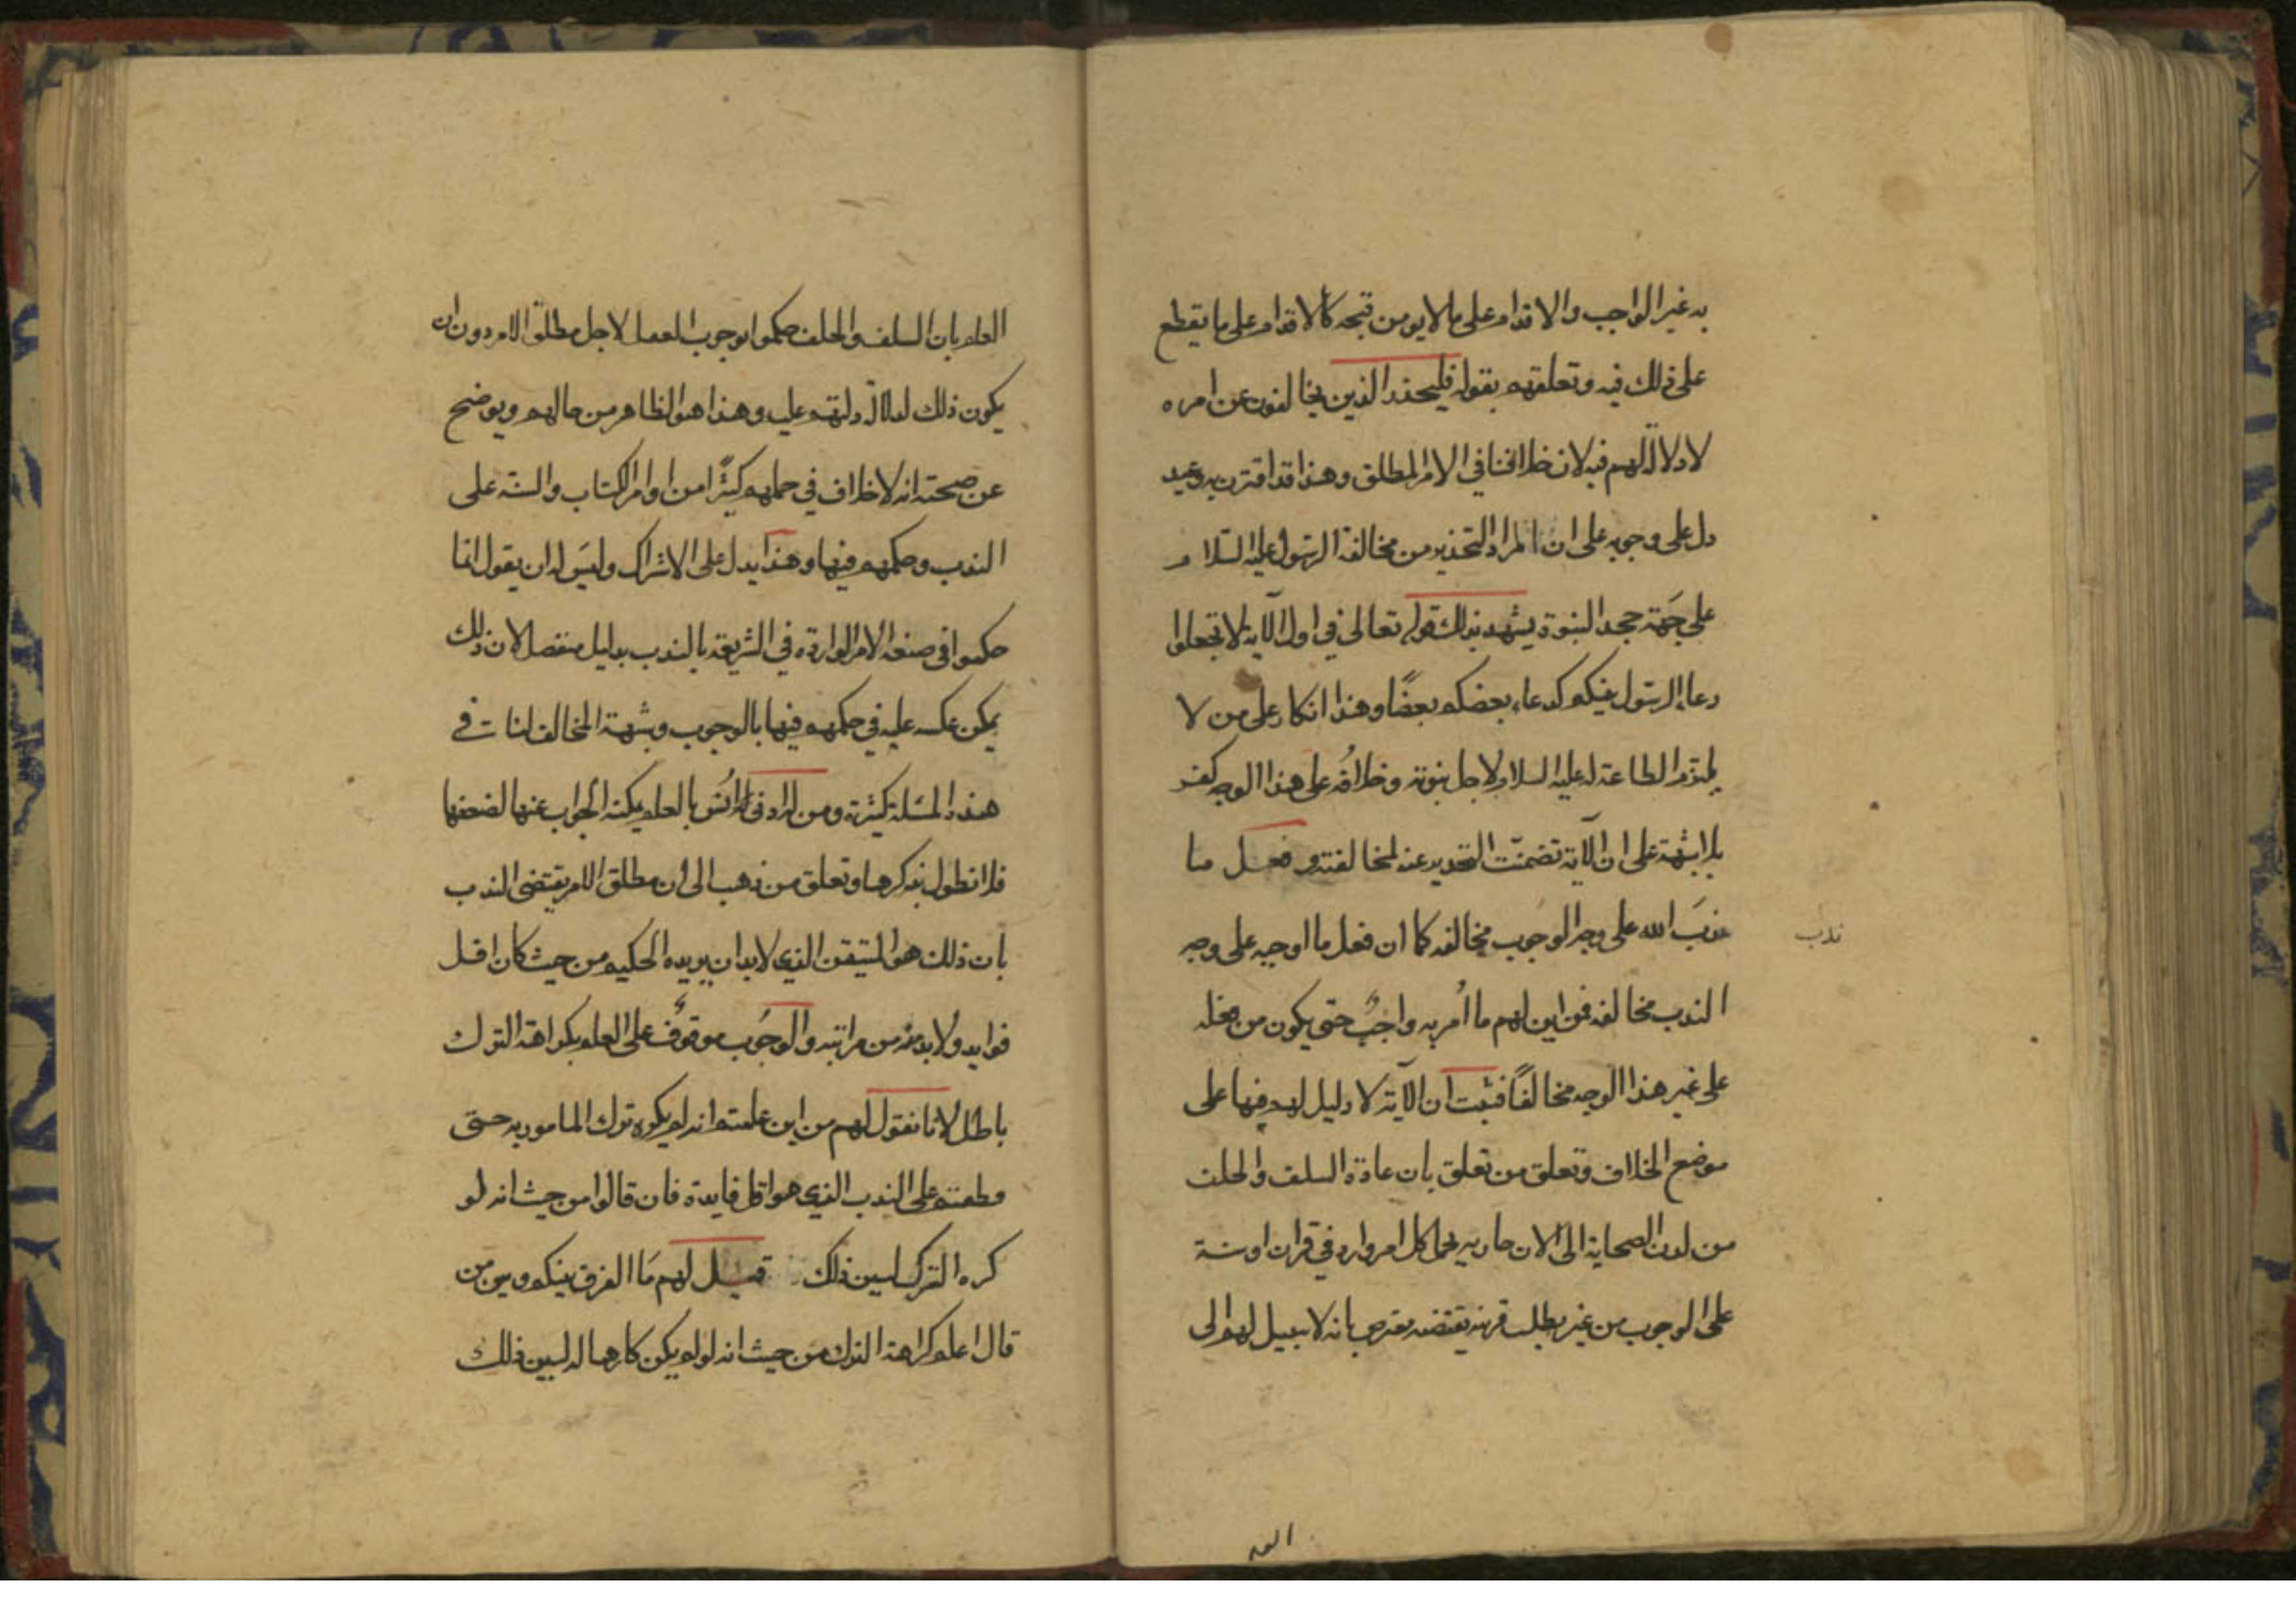 به غير الواجب والاقدام على ما لا يومن قبحه كالاقدام على ما يقطع
على ذلك فيه وتعلقهم بقوله فليحذر الذين يخالفون عن امره
لا دلالة لهم فيه لان خلافنا في الامر المطلق وهذا قد اقترن به وعيد
دل على وجوبه على ان المراد التحذير من مخالفة الرسول عليه السلام
على جهة جحد النبوة يشهد بذلك قوله تعالى في اول الآية لا تجعلوا
دعاء الرسول بينكم كدعاء بعضكم بعضًا وهذا انكار على من لا
يلتزم الطاعة له عليه السلام لاجل نبوته وخلافُه على هذا الوجه كفر
بلا شبهة على ان الآية تضمنت التحذير عنه لمخالفته وفعل ما
ندَبَ الله على وجه الوجوب مخالفه كما ان فعل ما اوجبه على وجه
ندب
الندب مخالفه فمن اين لهم ما اُمر به واجبٌ حتى يكون من فعله
على غير هذا الوجه مخالفًا فثبت ان الآية لا دليل لهم فيها على
موضع الخلاف وتعلق من تعلق بان عادة السلف والخلف
من لدن الصحابة الى الان جاريه بحمل كل امر وارد في قران او سنة
على الوجوب من غير طلب قرينه يقتضيه بانه لا سبيل لهم الى
العلم بان السلف والخلف حكموا بوجوب الفعل لاجل مطلق الامر دون ان
يكون ذلك لدلالة دلتهم عليه وهذا هو الظاهر من حالهم ويوضح
عن صحته انه لا خلاف في حملهم كثيرًا من اوامر الكتاب والسنه على
الندب وحكمهم فيها وهذا يدل على الاشتراك وليس له ان يقول انما
حكموا في صيغة الامر الواردة في الشريعة بالندب بدليل منفصل لان ذلك
يمكن عكسه عليه في حكمهم فيها بالوجوب وشبهة المخالف لنا في
هذه المسئلة كثيرة ومن له ادنى اُنس بالعلم يمكنه الجواب عنها لضعفها
فلا نطول بذكرها وتعلق من ذهب الى ان مطلق الامر يقتضي الندب
بان ذلك هو المتيقن الذي لا بد ان يريده الحكيم من حيث كان اقل
فوايده ولا بد منه من مراتبه والوجوب موقوف على العلم بكراهة الترك
باطل لانا نقول لهم من اين علمتم انه لم يكره ترك المامور به حتى
قطعتم على الندب الذي هو اقل فايدة فان قالوا من حيث انه لو
كره الترك لبين ذلك قيل لهم مَا الفرق بينكم وبين من
قال اعلم كراهة الترك من حيث انه لو لم يكن كارها له لبين ذلك
العلم